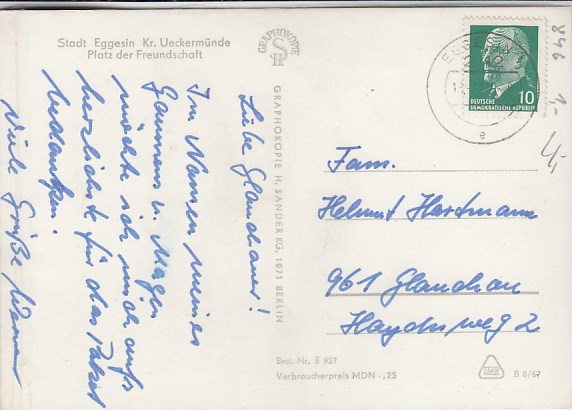 Stadt Eggesin Kr. Ueckermünde
Platz der Freundschaft
Liebe Glauchauer!
Im Namen meines
Gaumens u. Magen
möchte ich mich aufs
herzlichste für das Paket
bedanken.
Viele Grüße Werner
GRAPHOKOPIE
GRAPHOKOPIE H. SANDER KG, 1071 BERLIN
EGG
e
10
DEUTSCHE
DEMOKRATISCHE REPUBLIK
846 1,-
Fam.
Helmut Hartmann
961 Glauchau
Haydnweg 2
Best.-Nr. E 927
Verbraucherpreis MDN -,25
B 8/67